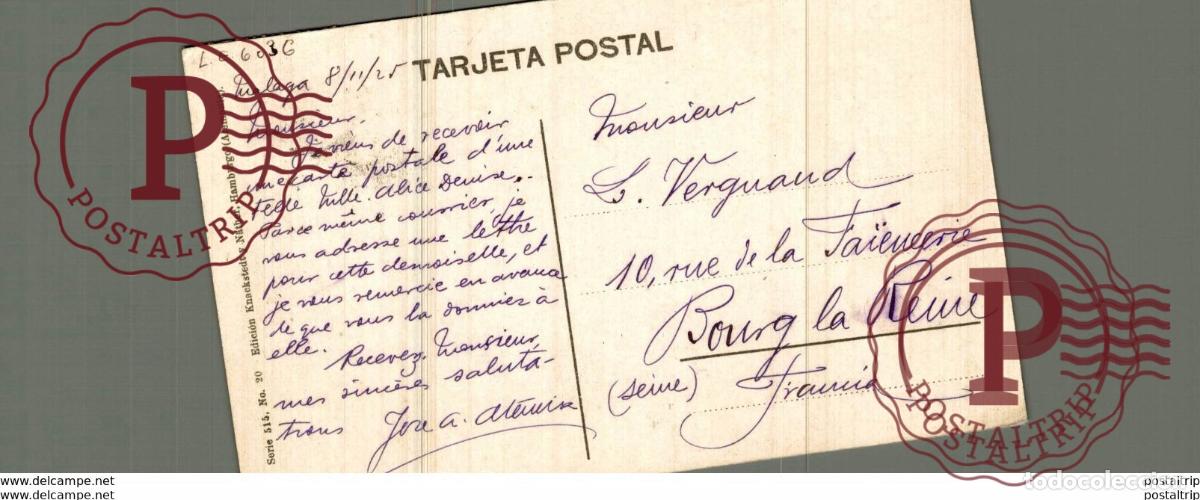 L.E 603G
TARJETA POSTAL
Malaga 8/11/25
Monsieur.
Je viens de recevoir
une carte postale d'une
telle Mlle. Alice Denise.
par ce même courrier, je
vous adresse une lettre
pour cette demoiselle, et
je vous remercie en avance
que vous la donniez à
elle.
Recevez, Monsieur,
mes sincères saluta-
tions
Jose A.
Monsieur
Vergnaud
10, rue de la Faïencerie
Bourg la Reine
(Seine) Francia
Serie 515, No. 20 Edición Knackstedt y Näther, Hamburgo
POSTALTRIP
POSTALTRIP
POSTALTRIP
todocoleccion
www.delcampe.net
www.delcampe.net
postaltrip
postaltrip